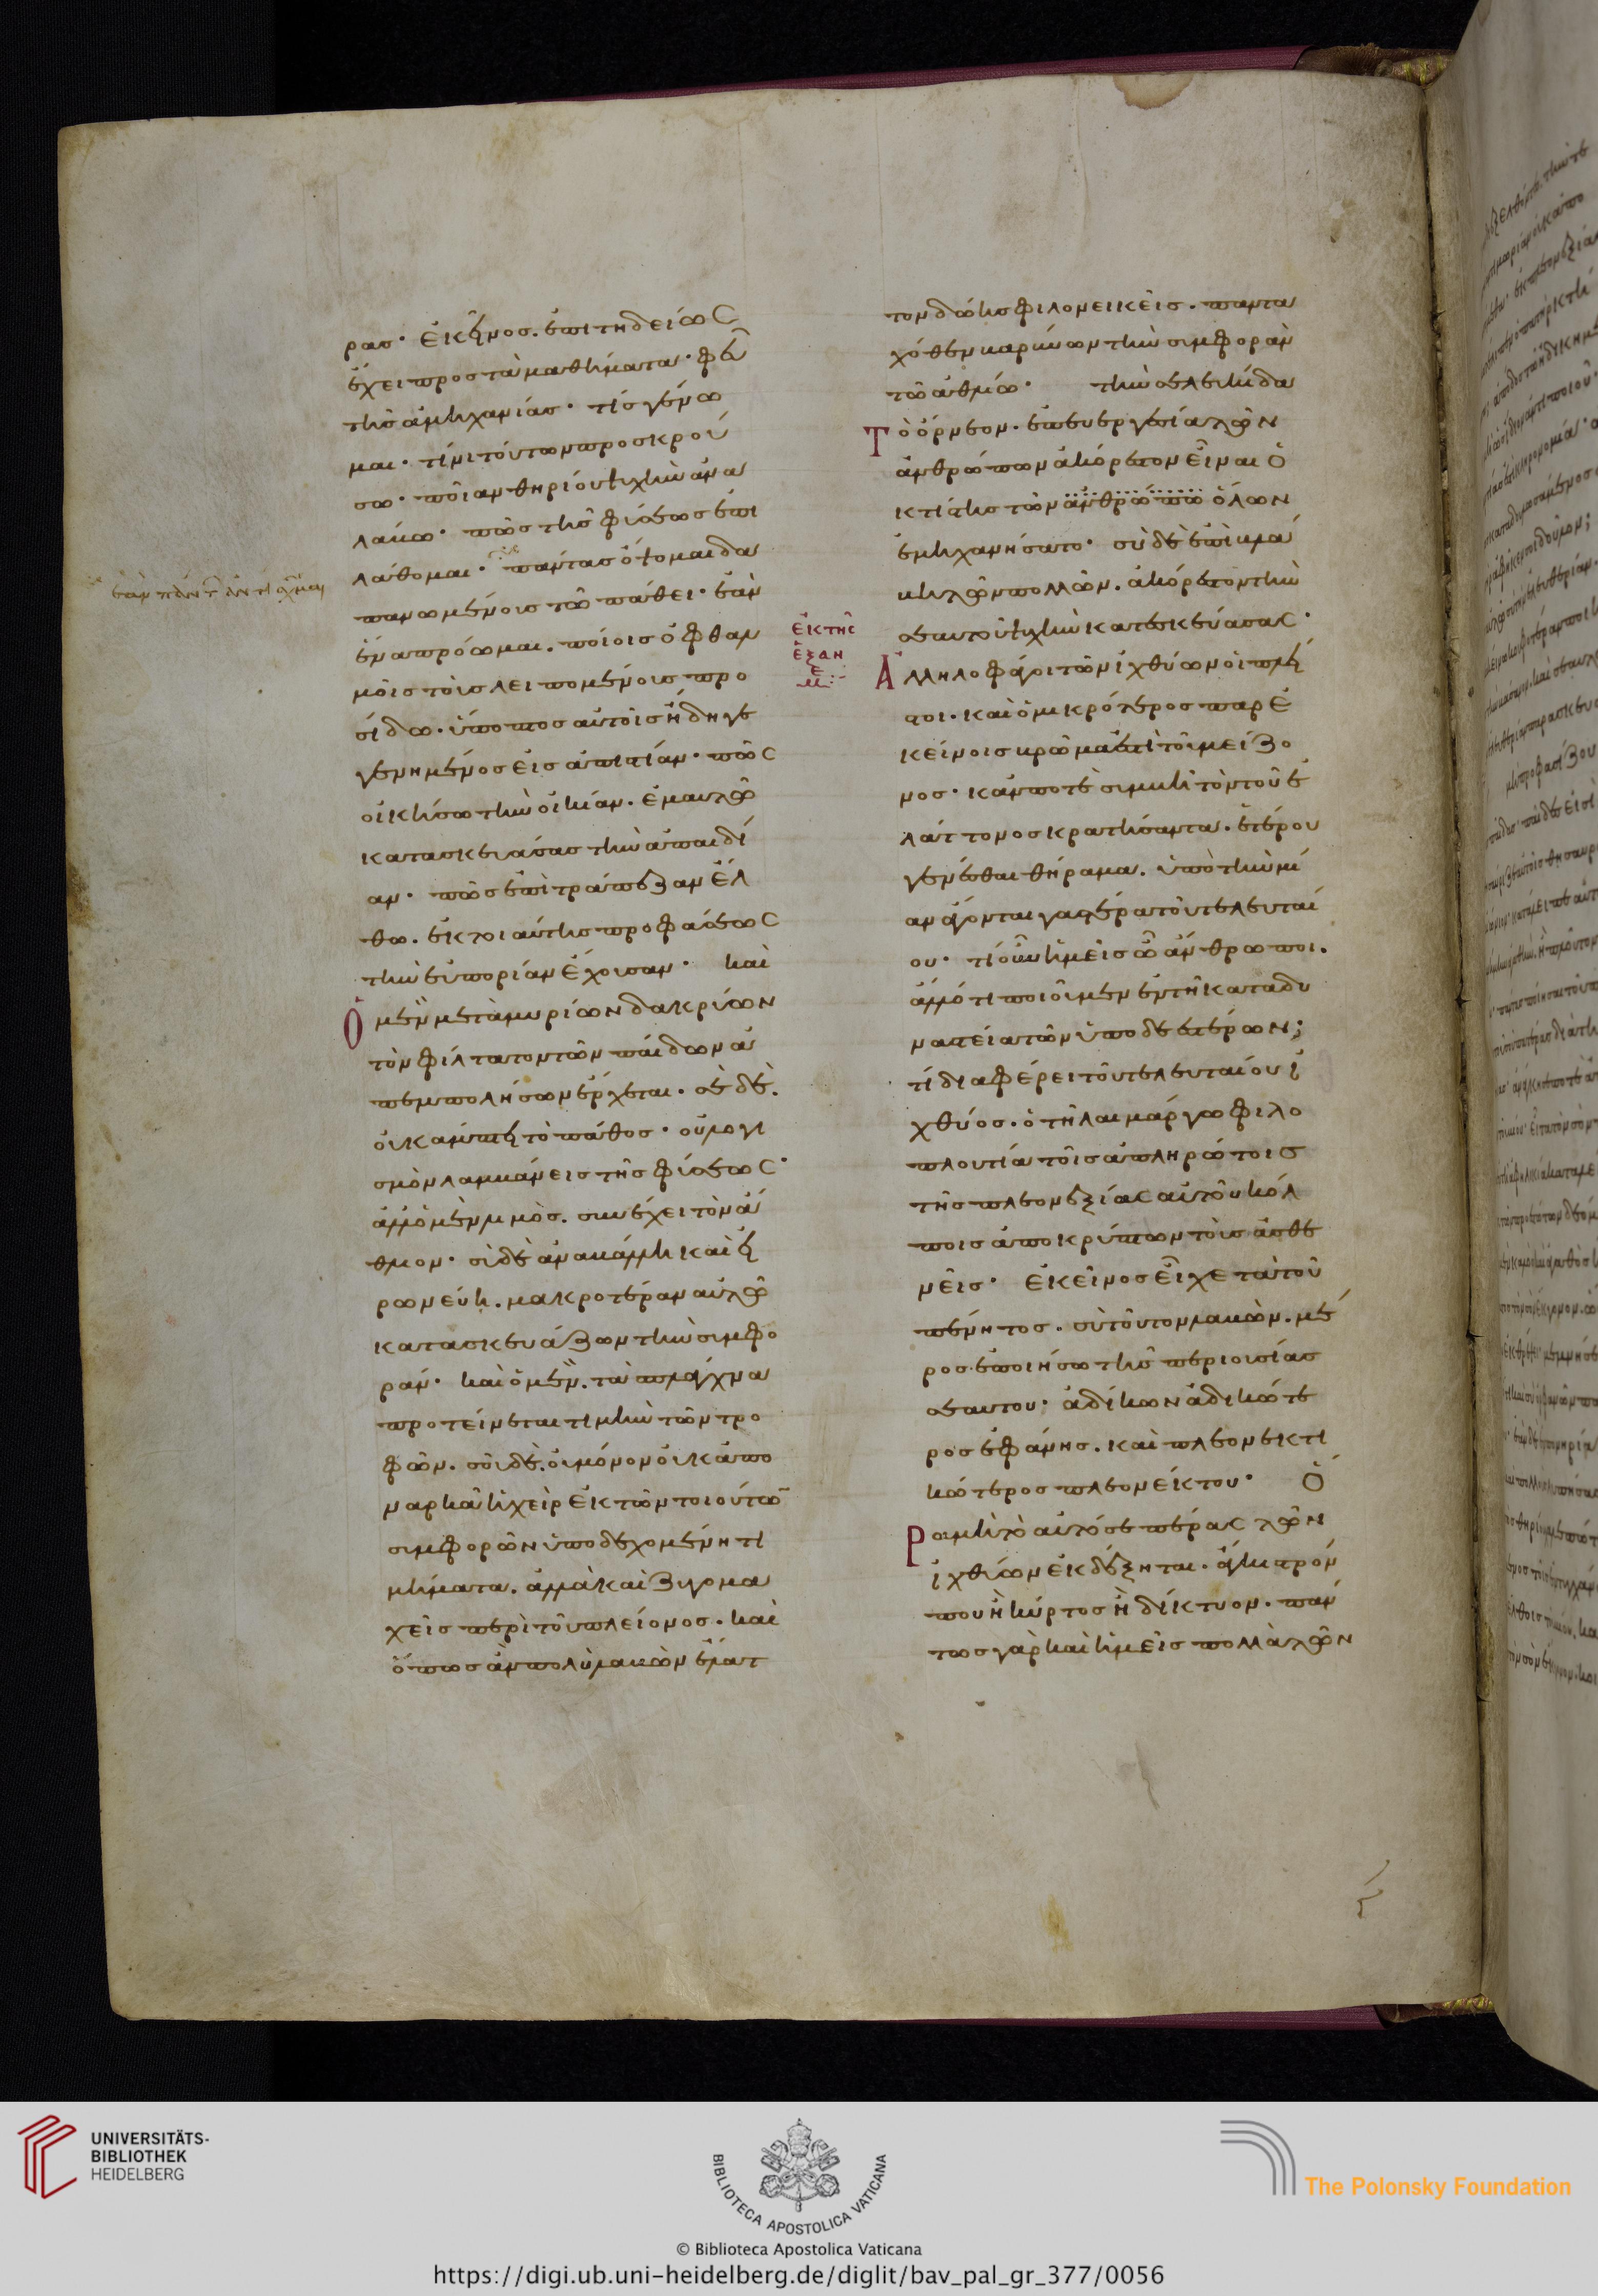 ρας· ἐκεῖνος. ἐπιτηδείως
ἔχει προς τὰ μαθήματα· φεῦ
τῆς ἀμηχανίας· τίς γένω
μαι· τίνι τούτων προσκρού
σω· ποίαν θηρίου ψυχὴν ἀνα
λάβω· πῶς τῆς φύσεως ἐπι
λάθομαι· πάντας ὄψομαι δα
πανωμένους τῶ πάθει· ἐὰν
ἕνα πρόωμαι. ποίοις ὀφθαλ
μοῖς τοὺς λειπομένους προ
σίδω. ὕποπτος αὐτοῖς ἤδη γε
γενημένος εἰς ἀπιστίαν· πῶς
οἰκήσω τὴν οἰκίαν. ἐμαυτῶ
κατασκευάσας τὴν ἀπαιδί
αν· πῶς ἐπὶ τράπεζαν ἔλ
θω. ἐκ τοιαύτης προφάσεως
τὴν εὐπορίαν ἔχουσαν· καὶ
Ὁ μὲν μετὰ μυρίων δακρύων
τὸν φίλτατον τῶν παίδων ἀ
πεμπολήσων ἔρχεται. σὲ δὲ.
οὐ κάμπτει τὸ πάθος· οὐ λογι
σμὸν λαμβάνεις τῆς φύσεως·
ἀλλ' ὁ μὲν λιμὸς. συνέχει τὸν ἄ
θλιον· σὺ δὲ ἀναβάλλη καὶ εἰ
ρωνεύη. μακροτέραν αὐτῶ
κατασκευάζων τὴν συμφο
ράν· καὶ ὁ μὲν. τὰ σπλάγχνα
προτείνεται τιμὴν τῶν τρο
φῶν. σοῦ δὲ. οὐ μόνον οὐκ ἀπο
ναρκᾶ ἡ χεὶρ ἐκ τῶν τοιούτω̄
συμφορῶν ὑποδεχομένη τι
μήματα. ἀλλὰ καὶ ζυγομα
χεῖς περὶ τοῦ πλείονος. καὶ
ὅπως ἂν πολὺ λαβὼν ἔλατ
τον δώης φιλονεικεῖς. παντα
χόθεν βαρύνων τὴν συμφορὰν
τῶ ἀθλίω· τὴν σελευκίδα
Τὸ ὄρνεον. ἐπ' εὐεργεσία τῶν
ἀνθρώπων ἀκόρεστον εἶναι ὁ
κτίστης τῶν ἀνθρώπω ὅλων
ἐμηχανήσατο· σὺ δὲ ἐπὶ βλά
βη τῶν πολλῶν. ἀκόρεστον τὴν
σεαυτοῦ ψυχὴν κατεσκεύασας·
ἐκ τῆς
ἑξαη
Ἀλληλοφάγοι τῶν ἰχθύων οἱ πλεῖ
στοι. καὶ ὁ μικρότερος παρ' ἐ
κείνοις βρῶμα ἐστὶ τοῦ μείζο
νος· κἄν ποτὲ συμβῆ τὸν τοῦ ἐ
λάττονος κρατήσαντα. ἑτέρου
γενέσθαι θήραμα. ὑπὸ τὴν μί
αν ἄγονται γαστέρα τοῦ τελευταί
ου· τί οὖν ἡμεῖς ὦ ἄνθρωποι.
ἄλλό τι ποιοῦμεν ἐν τῆ καταδυ
ναστεία τῶν ὑποδεεστέρων;
τί διαφέρει τοῦ τελευταίου ἰ
χθύος. ὁ τῆ λαιμάργω φιλο
πλουτία τοῖς ἀπληρώτοις
τῆς πλεονεξίας αὐτοῦ κόλ
ποις ἀποκρύπτων τοὺς ἀσθε
νεῖς· ἐκεῖνος εἶχε τὰ τοῦ
πένητος. σὺ τοῦτον λαβὼν. μέ
ρος ἐποιήσω τῆς περιουσίας
σεαυτου· ἀδίκων ἀδικώτε
ρος ἐφάνης. καὶ πλεονεκτι
κώτερος πλεονέκτου· Ὅ
Ρα μὴ τὸ αὐτό σε πέρας τῶν
ἰχθύων ἐκδέξηται. ἄγκιστρόν
που ἢ κύρτος ἢ δίκτυον. πάν
τως γὰρ καὶ ἡμεῖς πολλὰ τῶν
UNIVERSITÄTS-
BIBLIOTHEK
HEIDELBERG
BIBLIOTECA APOSTOLICA VATICANA
The Polonsky Foundation
© Biblioteca Apostolica Vaticana
https://digi.ub.uni-heidelberg.de/diglit/bav_pal_gr_377/0056